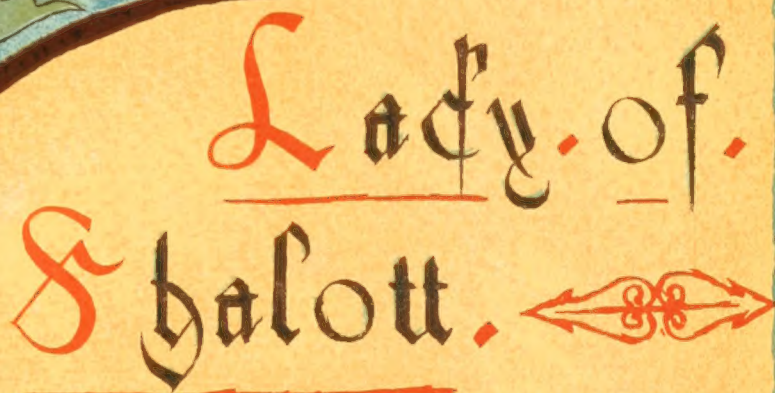 Lady. of.
Shalott.